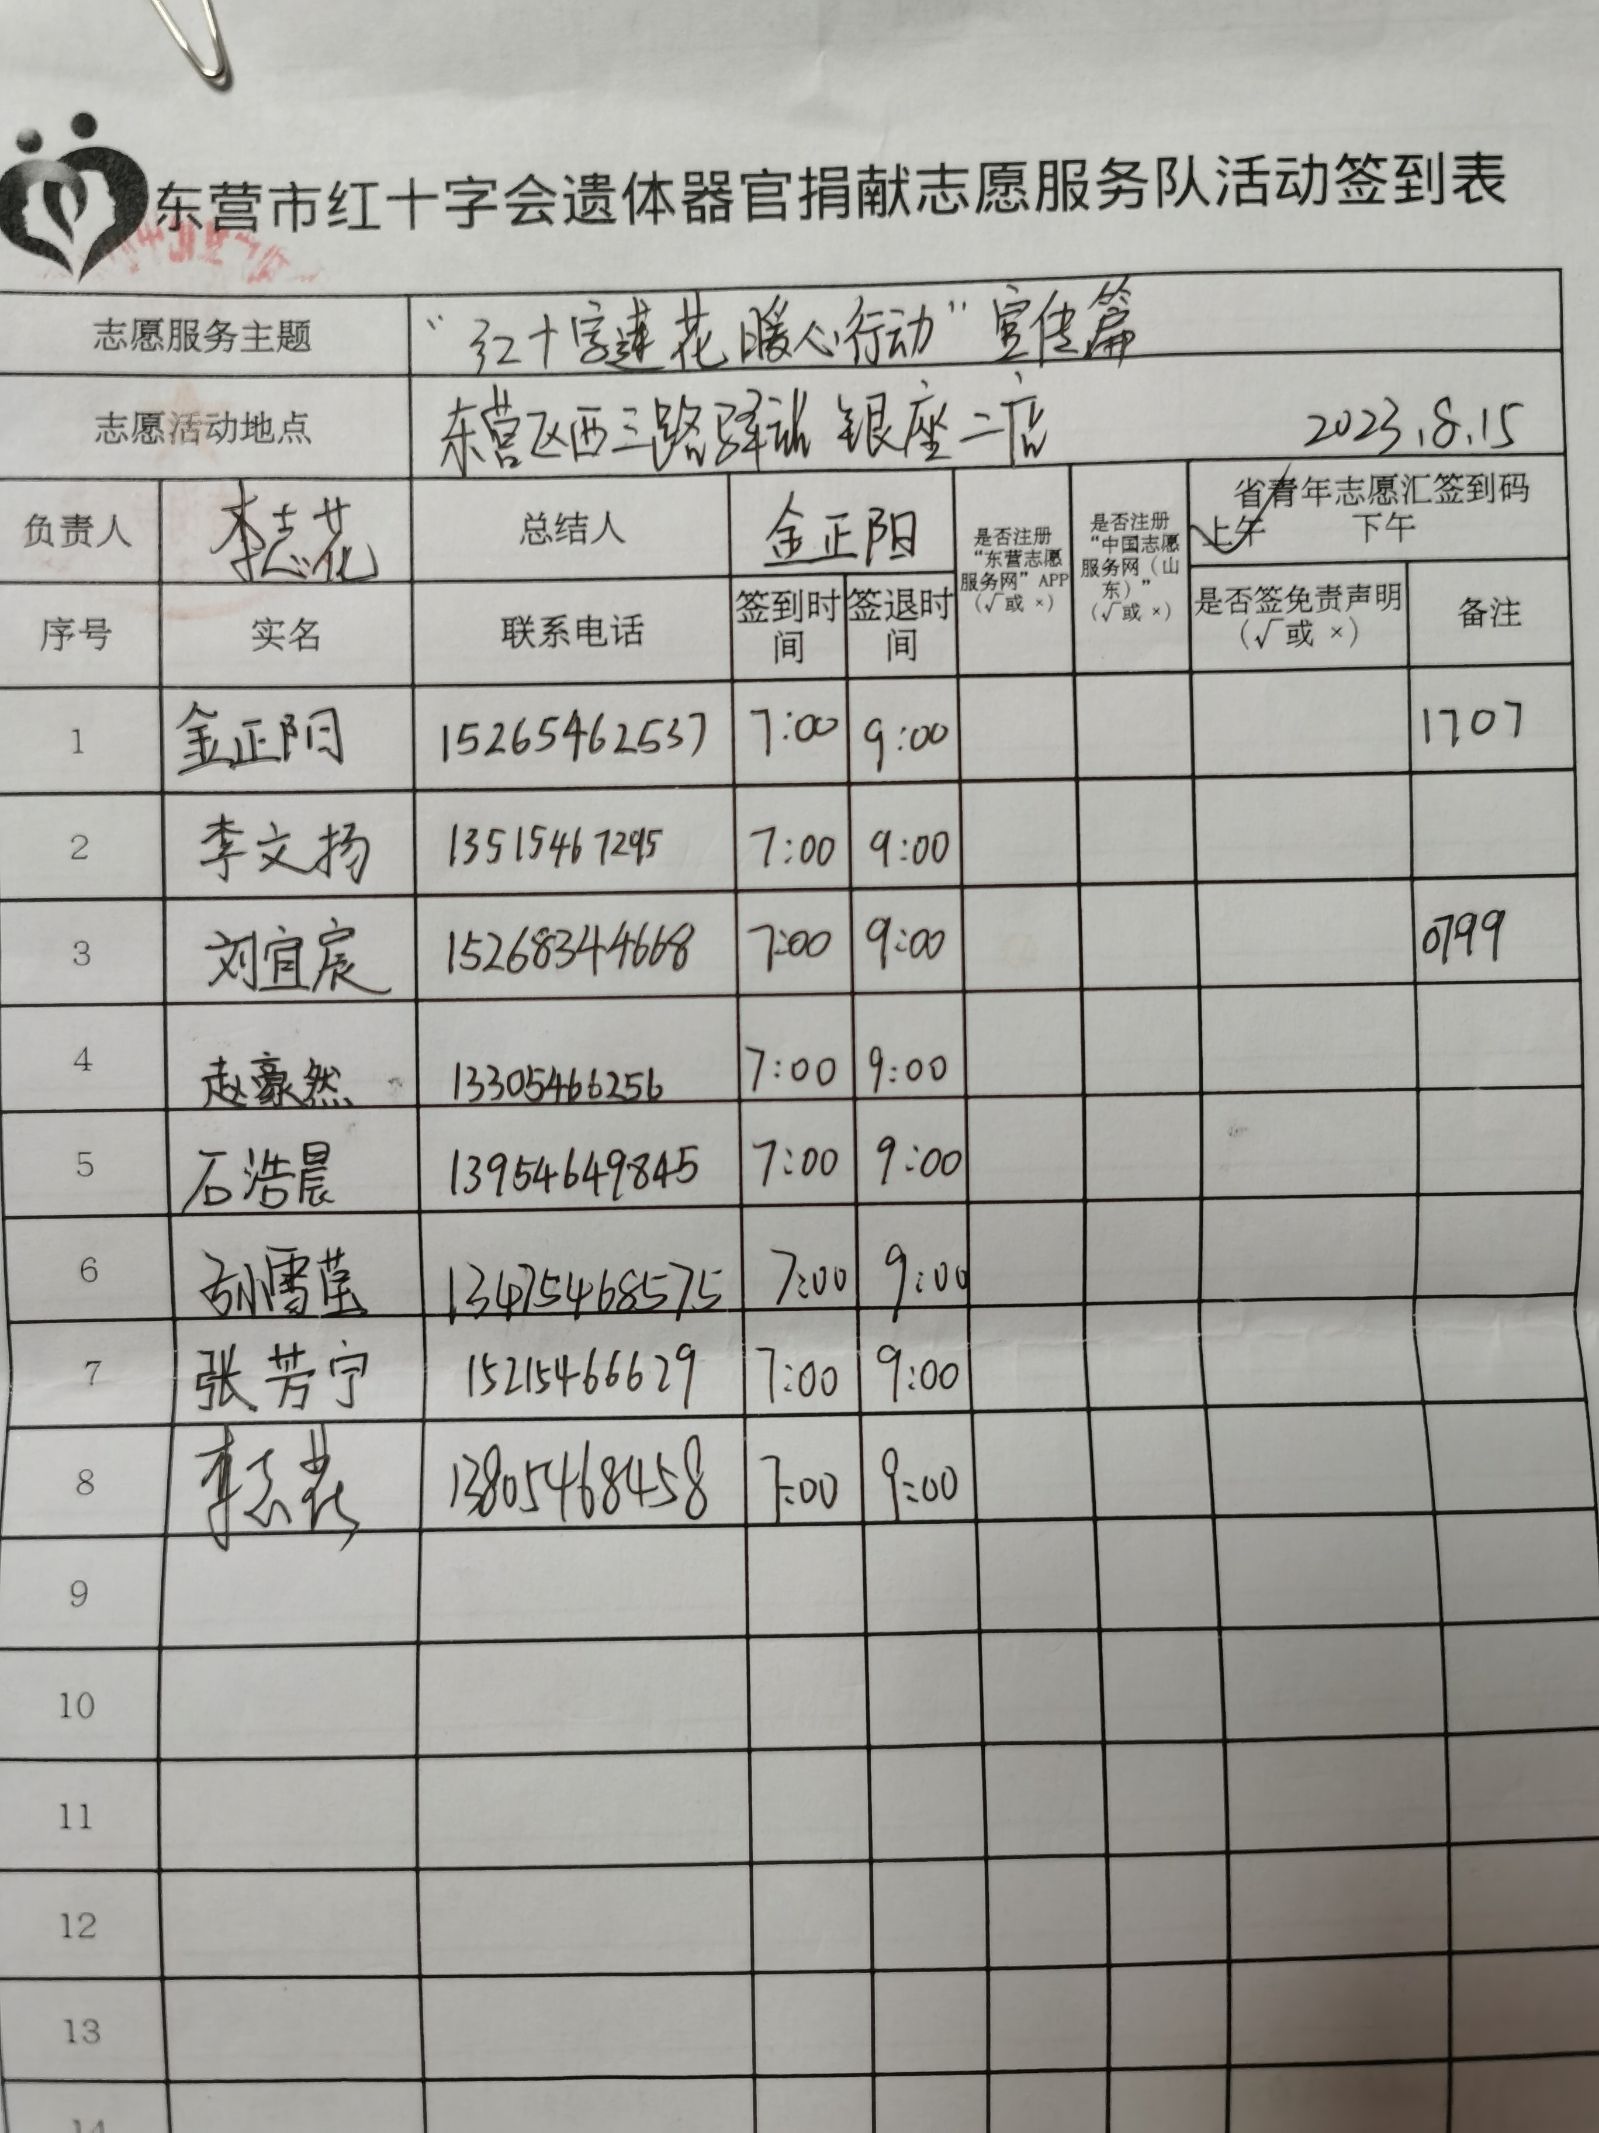 东营市红十字会遗体器官捐献志愿服务队活动签到表
志愿服务主题 “红十字莲花暖心行动”宣传篇
志愿活动地点 东营区西三路驿站 银座二店 2023.8.15
负责人 李志花 总结人 金正阳 是否注册“东营志愿服务网”APP（√或×） 是否注册“中国志愿服务网（山东）”（√或×） 省青年志愿汇签到码 上午 ✓ 下午
序号 实名 联系电话 签到时间 签退时间 是否签免责声明（√或×） 备注
1 金正阳 15265462537 7:00 9:00 1707
2 李文扬 13515467295 7:00 9:00
3 刘宜宸 15268344668 7:00 9:00 0799
4 赵豪然 13305466256 7:00 9:00
5 石浩晨 13954649845 7:00 9:00
6 孙雪莹 13475468575 7:00 9:00
7 张芳宁 15215466629 7:00 9:00
8 李志花 13805468458 7:00 9:00
9
10
11
12
13
14